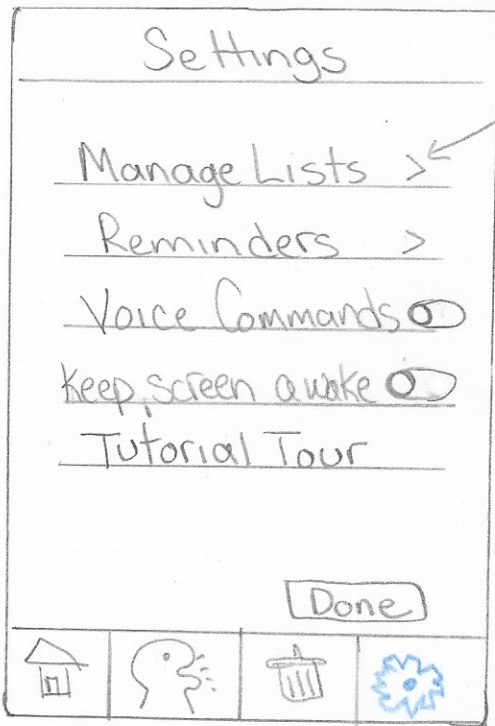 Settings
Manage Lists >
Reminders >
Voice Commands
Keep screen awake
Tutorial Tour
Done